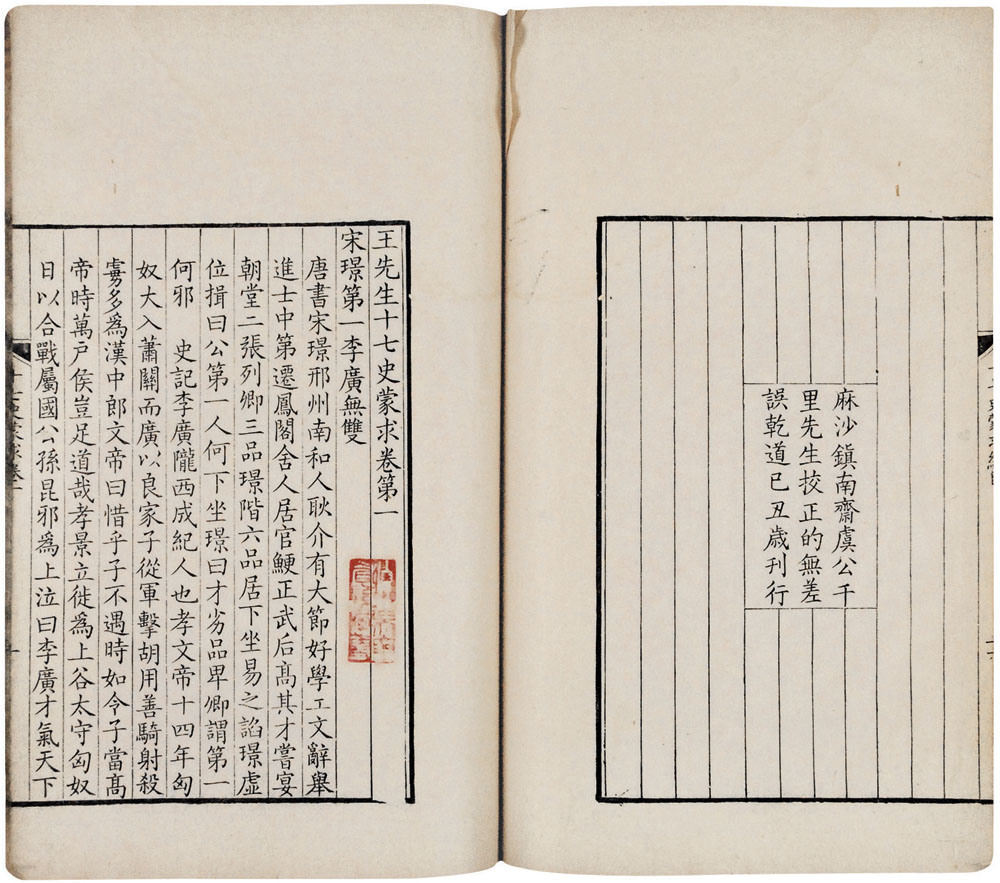 麻沙鎮南齋虞公千
里先生挍正的無差
誤乾道己丑歲刊行
王先生十七史蒙求卷第一
宋璟第一李廣無雙
唐書宋璟邢州南和人耿介有大節好學工文辭舉
進士中第遷鳳閣舍人居官鯁正武后髙其才嘗宴
朝堂二張列卿三品璟階六品居下坐易之諂璟虛
位揖曰公第一人何下坐璟曰才劣品卑卿謂第一
何邪　史記李廣隴西成紀人也孝文帝十四年匈
奴大入蕭關而廣以良家子從軍擊胡用善騎射殺
虜多爲漢中郎文帝曰惜乎子不遇時如令子當髙
帝時萬戶侯豈足道哉孝景立徙爲上谷太守匈奴
日以合戰屬國公孫昆邪爲上泣曰李廣才氣天下